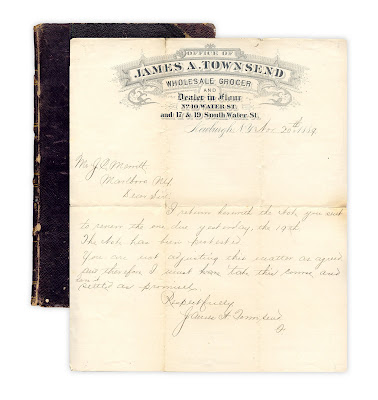 OFFICE OF
JAMES A. TOWNSEND
WHOLESALE GROCER
AND
Dealer in Flour
No. 10, WATER ST.
and 17 & 19, South Water St.
Newburgh, N.Y. Nov. 20th 1889
Mr J. S. Merritt
Marlboro N.Y.
Dear Sir
I return herewith the Note you sent
to renew the one due yesterday, the 19th.
The Note has been protested.
You are not adjusting this matter as agreed
and therefore I must have Note this come and
settled as promised.
Respectfully
James A Townsend